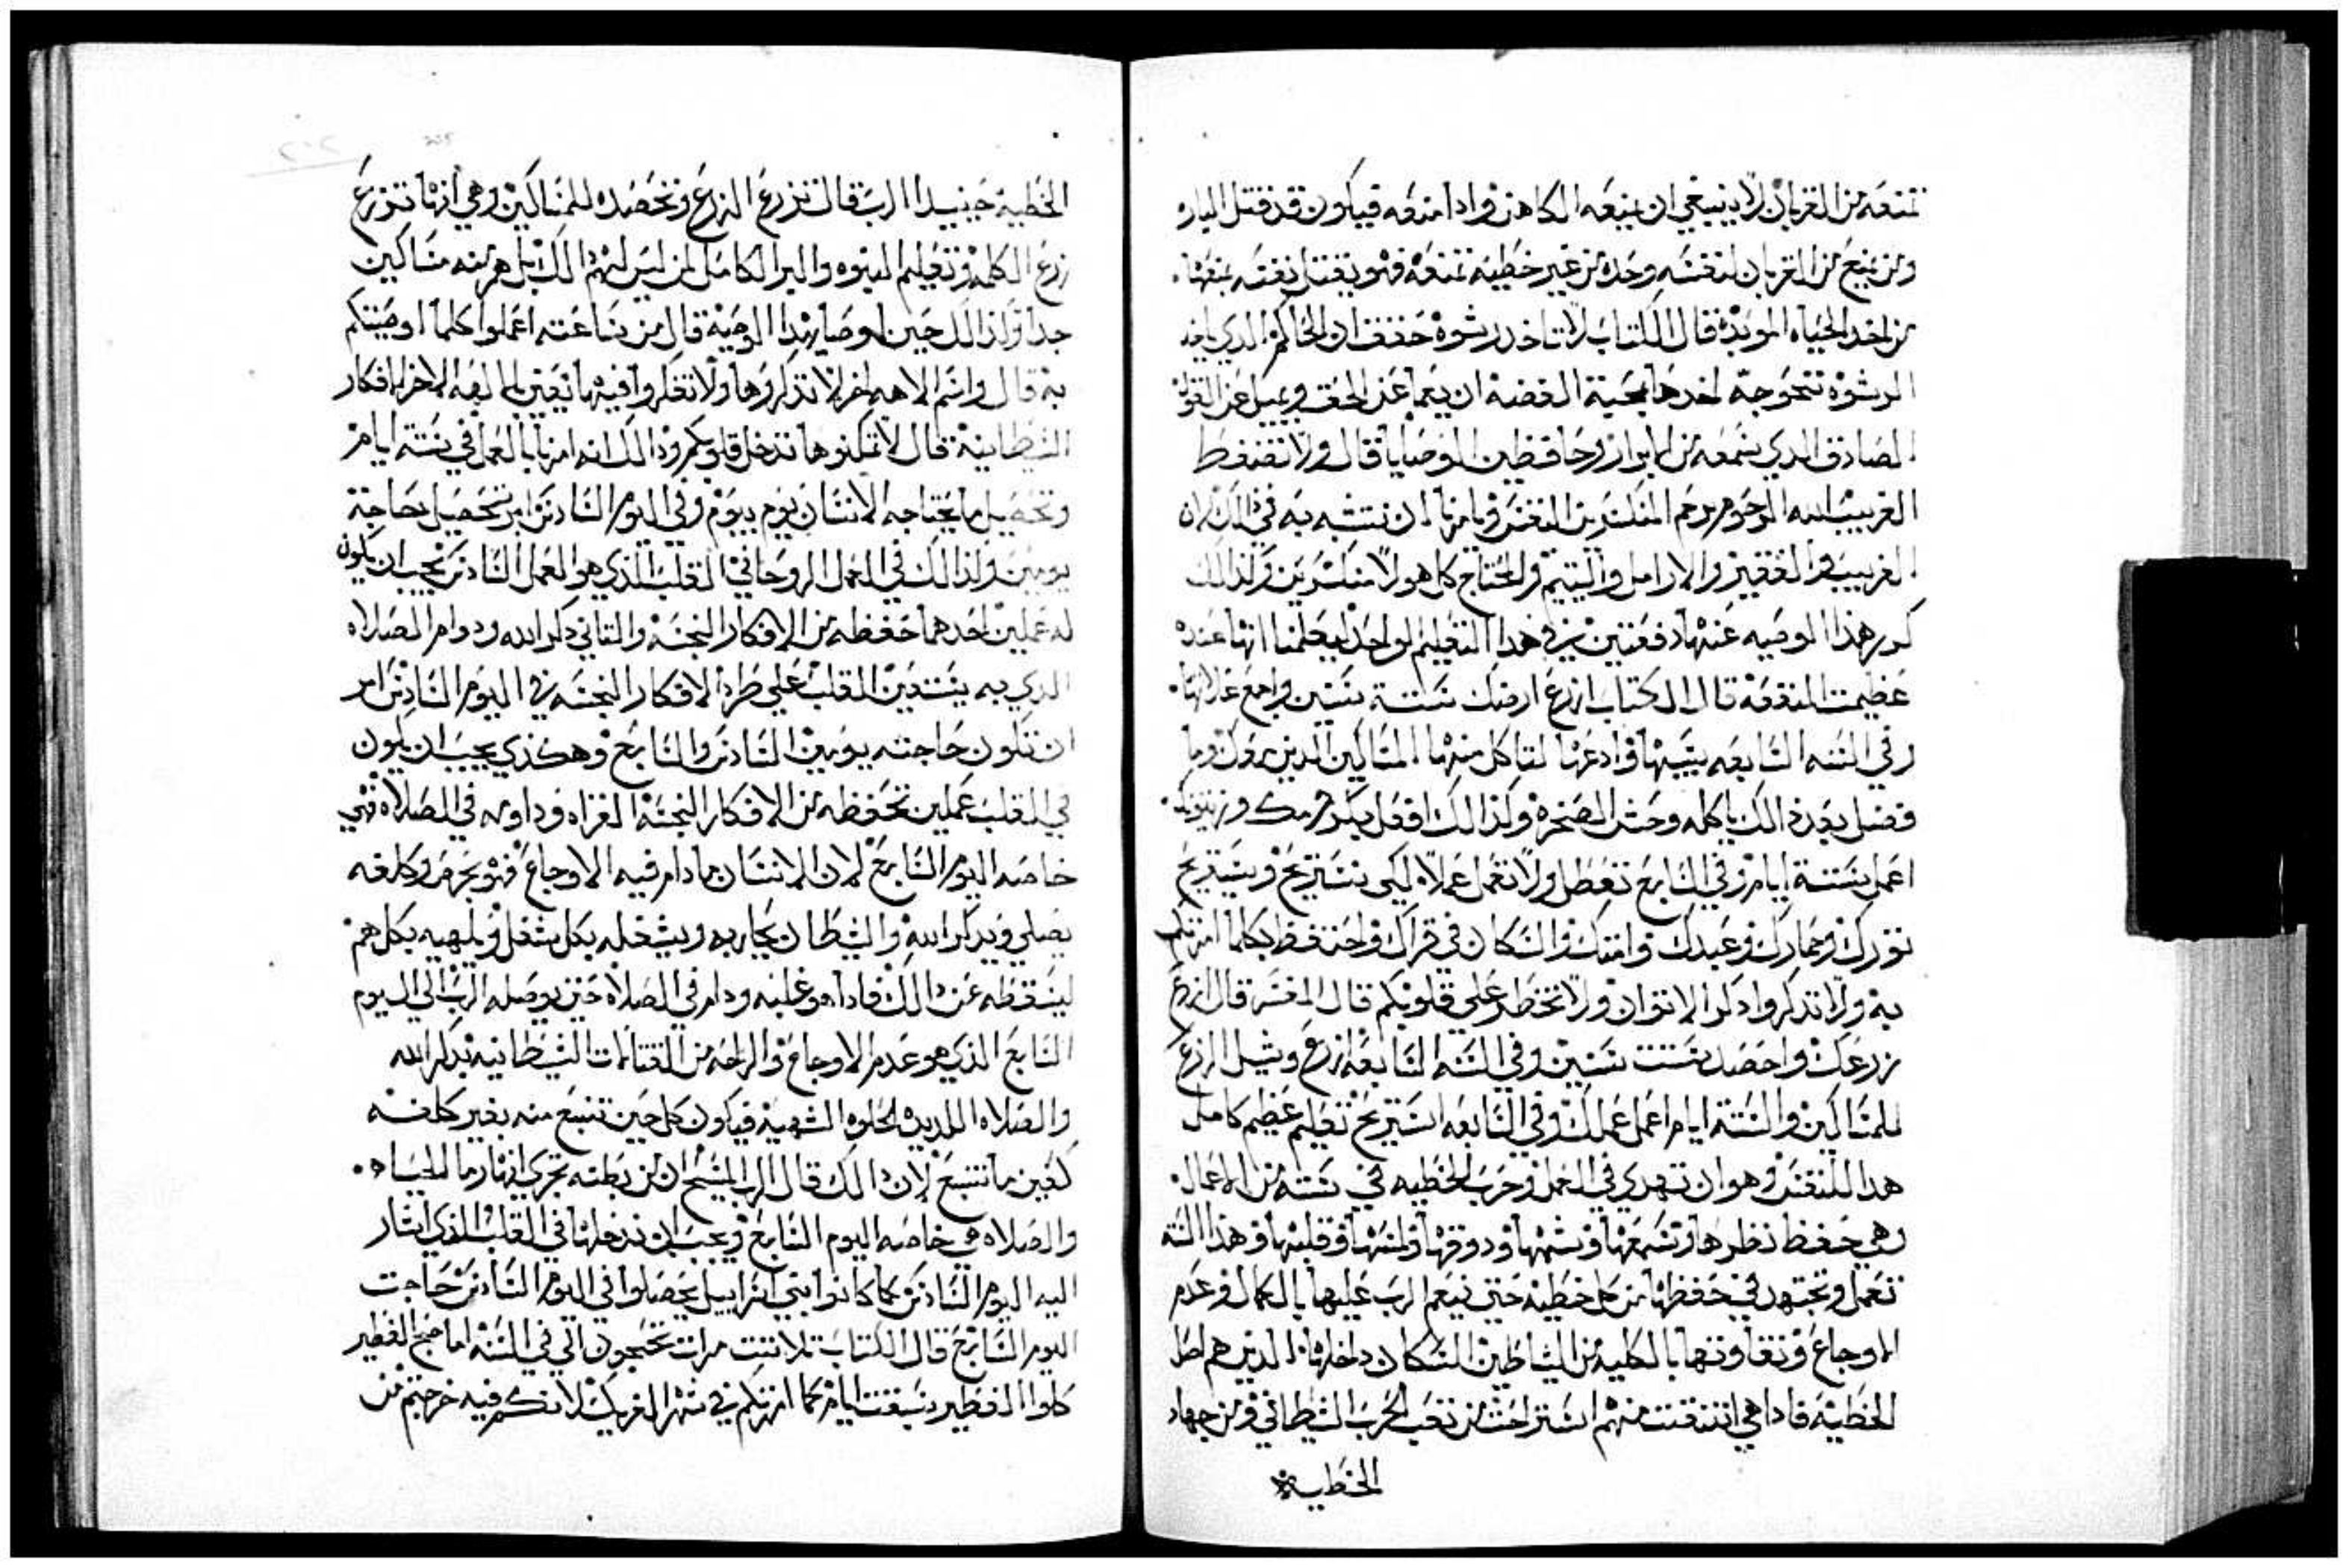 تمنعه من القربان لا ينبغي ان يمنعه الكاهن واذا منعه فيكون قد قتل الباره
ومن يمنع من القربان لنفسه وحده من غير خطية تمنعه فهو يقتل نفسه بمنعها
من اخد الحياه الموبدة قال الكتاب لا تاخد رشوة حفف ان الحاكم الدي ياخد
الرشوة تتحوجه اخدها بمحبة الفضة ان يعما عن الحق ويميل عن القول
الصادق الدي يسمعه من الابرار وحافظين الوصايا قال ولا تضغط
الغريب الله المرحوم يرحم المنكسرين المفسر ويامرنا ان نتشبه به في دالك لان
الغريب والفقير والارامل واليتيم والمحتاج كل هولا منكسرين وكدالك
كرر هذا الوصيه عنها دفعتين في هدا التعليم الواحد ليعلمنا انها عنده
عظيمت المنفعة قال الكتاب ازرع ارضك ستة سنين واجمع غلاتها
وفي السنه السابعه سيبها وادعها لتاكل منها المساكين الدين حولك وما
فضل بعد دالك ياكله وحش الصخره وكدالك افعل بكرمك وزيتونك
اعمل ستة ايام وفي السابع تعطل ولا تعمل عملا لكي يستريح ويستريح
تورك وحمارك وعبدك وامتك والسكان في قراك واحتفظ بكلما امرتكم
به ولا تدكروا دكر الاتوان ولا تخطر علي قلوبكم قال المفسر قال ازرع
زرعك واحصد ستت سنين وفي السنه السابعة ازرع وشيل الزرع
للمساكين والستة ايام اعمل عملك وفي السابعه استريح تعليم عظيم كامل
هدا للنفس وهو ان تهدي في العمل وحرب الخطيه في ستة من الاعمال
وهي حفظ نظرها وتسمعها وشمها ودوقها ولمسها وقلبها وهذا الستة
تعمل وتجتهد في حفظها من كل خطية حتي ينعم الرب عليها بالكمال وعدم
الاوجاع وتنقا ونها بالكلية من الشياطين السكان داخلها الدين هم اصل
الخطية فادا هي اتنقت منهم استراحت من تعب الحرب الشيطاني ومن جهاد
الخطية
الخطية حينيد الرب قال تزرع الزرع وتحصده للمساكين وهي انها تزرع
زرع الكلمة وتعليم البنوه والبر الكامل لمن ليس لهم دالك بل هم منه مساكين
جدا وكدالك حين اوصا بهدا الوصية قال من ساعته اعملوا كلما اوصيتكم
به قال واسم الاهه اخر لا تدكروها ولا تفكروا فيها يعني الالهه الاخر الافكار
الشيطانية قال لا تمكنوها تدخل قلوبكم ودالك انه امرنا بالعمل في ستة ايام
وتحصيل ما يحتاجه الانسان يوم بيوم وفي اليوم السادس امر تحصيل حاجة
يومين وكدالك في العمل الروحاني القلب الذي هو العمل السادس يجب ان يكون
له عملين احدهما حفظه من الافكار النجسة والتاني دكر الله ودوام الصلاه
الدي به يستعين القلب علي طرد الافكار النجسه في اليوم السادس امر
ان تكون حاجته يومين السادس والسابع وهكذي يجب ان يكون
في القلب عملين تحفظه من الافكار النجسة الغزاه وداومه في الصلاه فهي
خاصه اليوم السابع لان الانسان ما دام فيه الاوجاع فهو بحرص وكلفه
يصلي ويدكر الله والشيطان يحاربه ويشغله بكل شغل ويلهيه بكل هم
ليسقطه عن دالك فادا هو غلبه ودام في الصلاه حتي يوصله الرب الي اليوم
السابع الذي هو عدم الاوجاع والراحه من القتالات الشيطانيه بدكر الله
والصلاه اللديده الحلوه الشهيه فيكون كل حين تنبع منه بغير كلفه
كعين ما تنبع لان دالك قال الرب المسيح ان من بطنه تجري انهار ما الحياه
والصلاه هي خاصه اليوم السابع ويجب ان ندخلها في القلب الذي اشار
اليه اليوم السادس كما كانوا بني اسراييل يحصلوا في اليوم السادس حاجت
اليوم السابع قال الكتاب تلاتت مرات تحجون الي في السنه اما حج الفطير
كلوا الفطير سبعت ايام كما امرتكم في شهر الفريك لانكم فيه خرجتم من